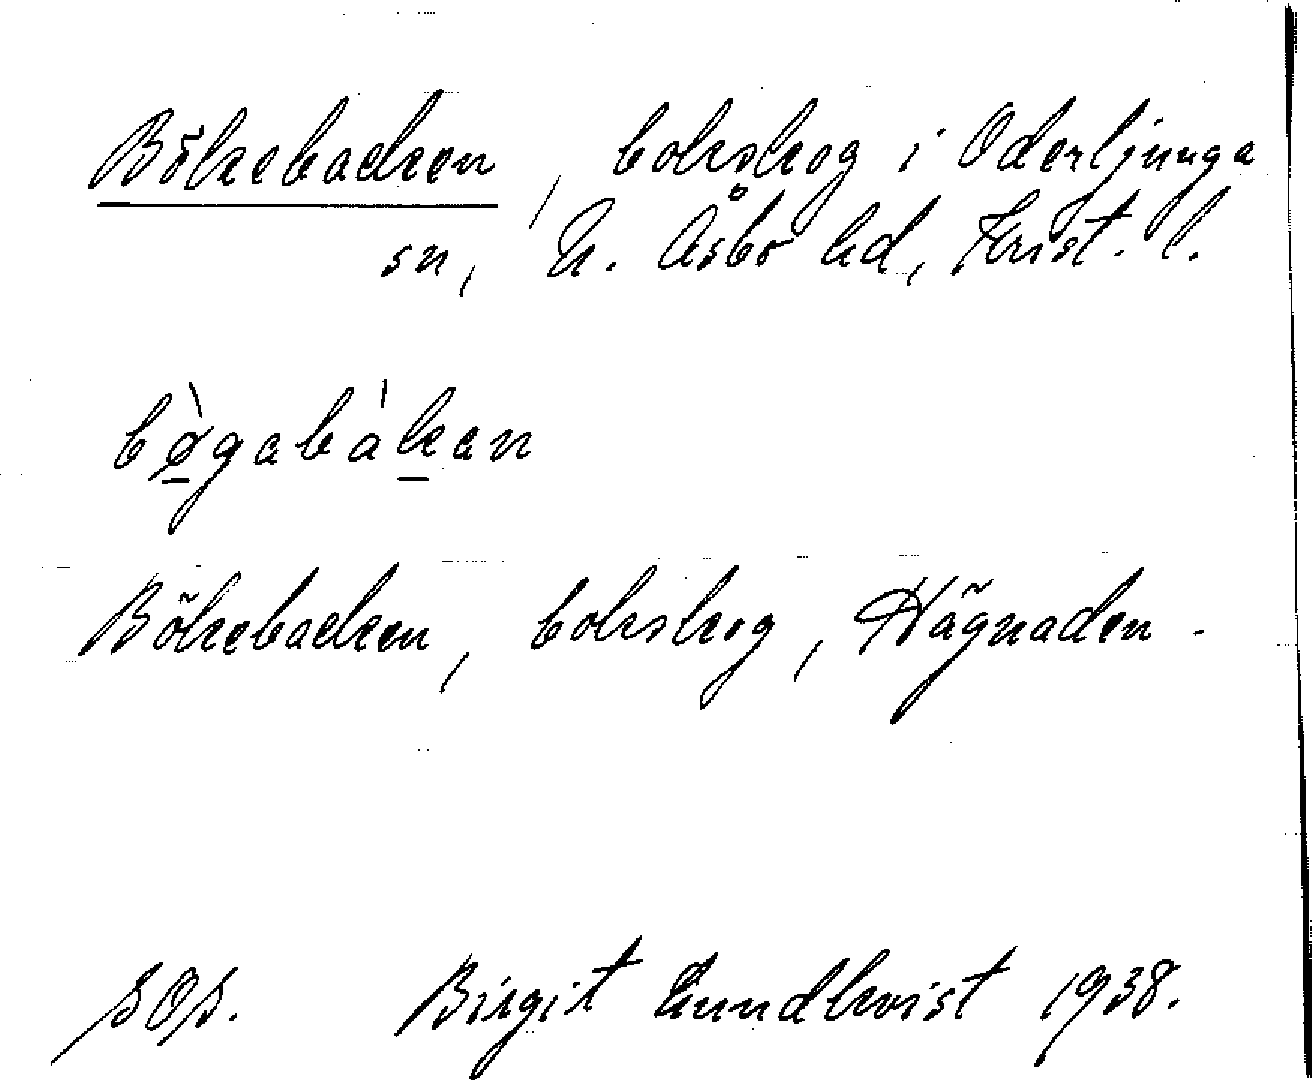 Bökebacken, bokskog i Oderljunga
sn, N. Åsbo hd, Krist. l.
bø̀gabàkan
Bökebacken, bokskog, Hägnaden.
SOS. Birgit Lundkvist 1938.